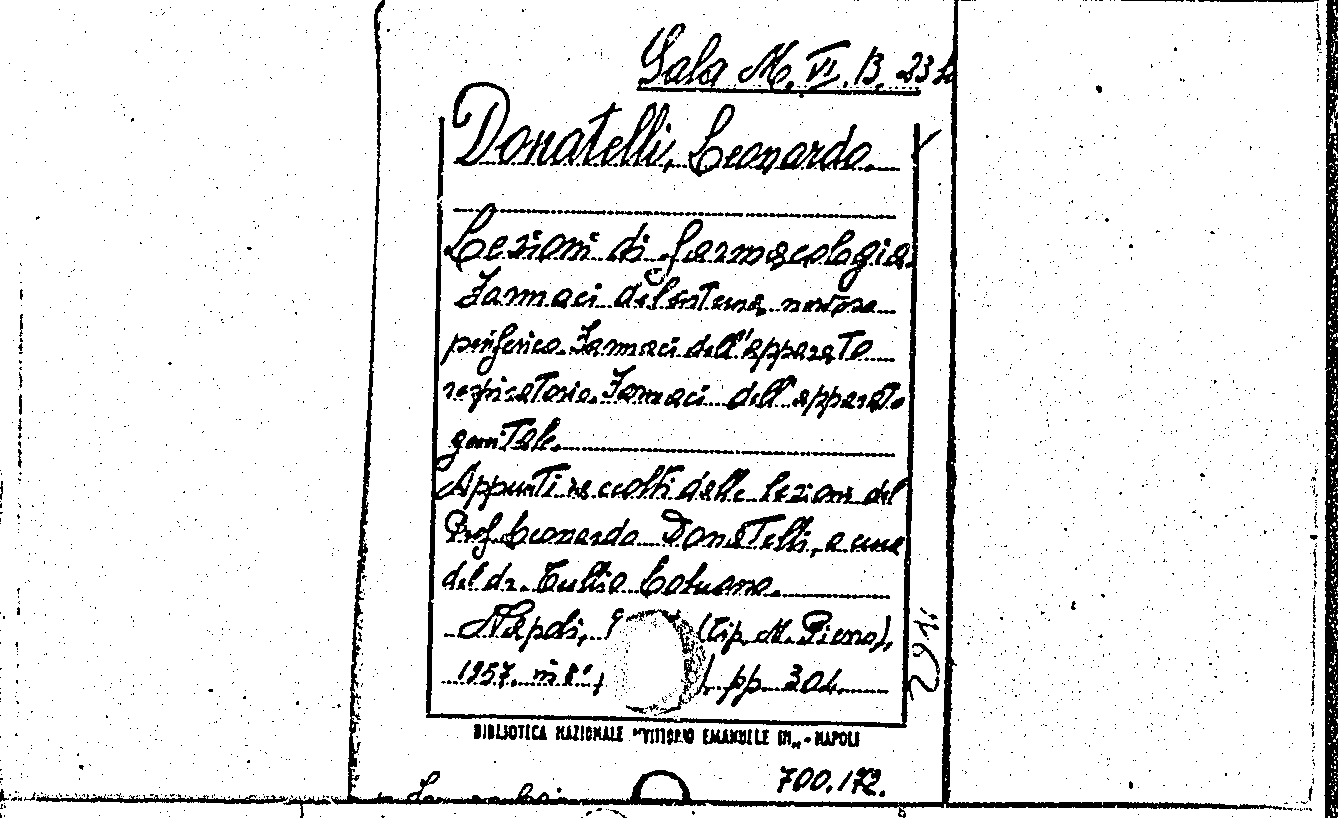 Sala M. VI. B. 23
Donatelli, Leonardo.
Lezioni di farmacologia.
Farmaci del sistema nervoso
periferico. Farmaci dell'apparato
respiratorio. Farmaci dell'apparato
genitale.
Appunti raccolti dalle lezioni del
Prof. Leonardo Donatelli, a cura
del dr. Tullio
Napoli, (Tip. M. Pierro),
1957. in 8°, pp. 304.
BIBLIOTECA NAZIONALE "VITTORIO EMANUELE III„ - NAPOLI
700.172.